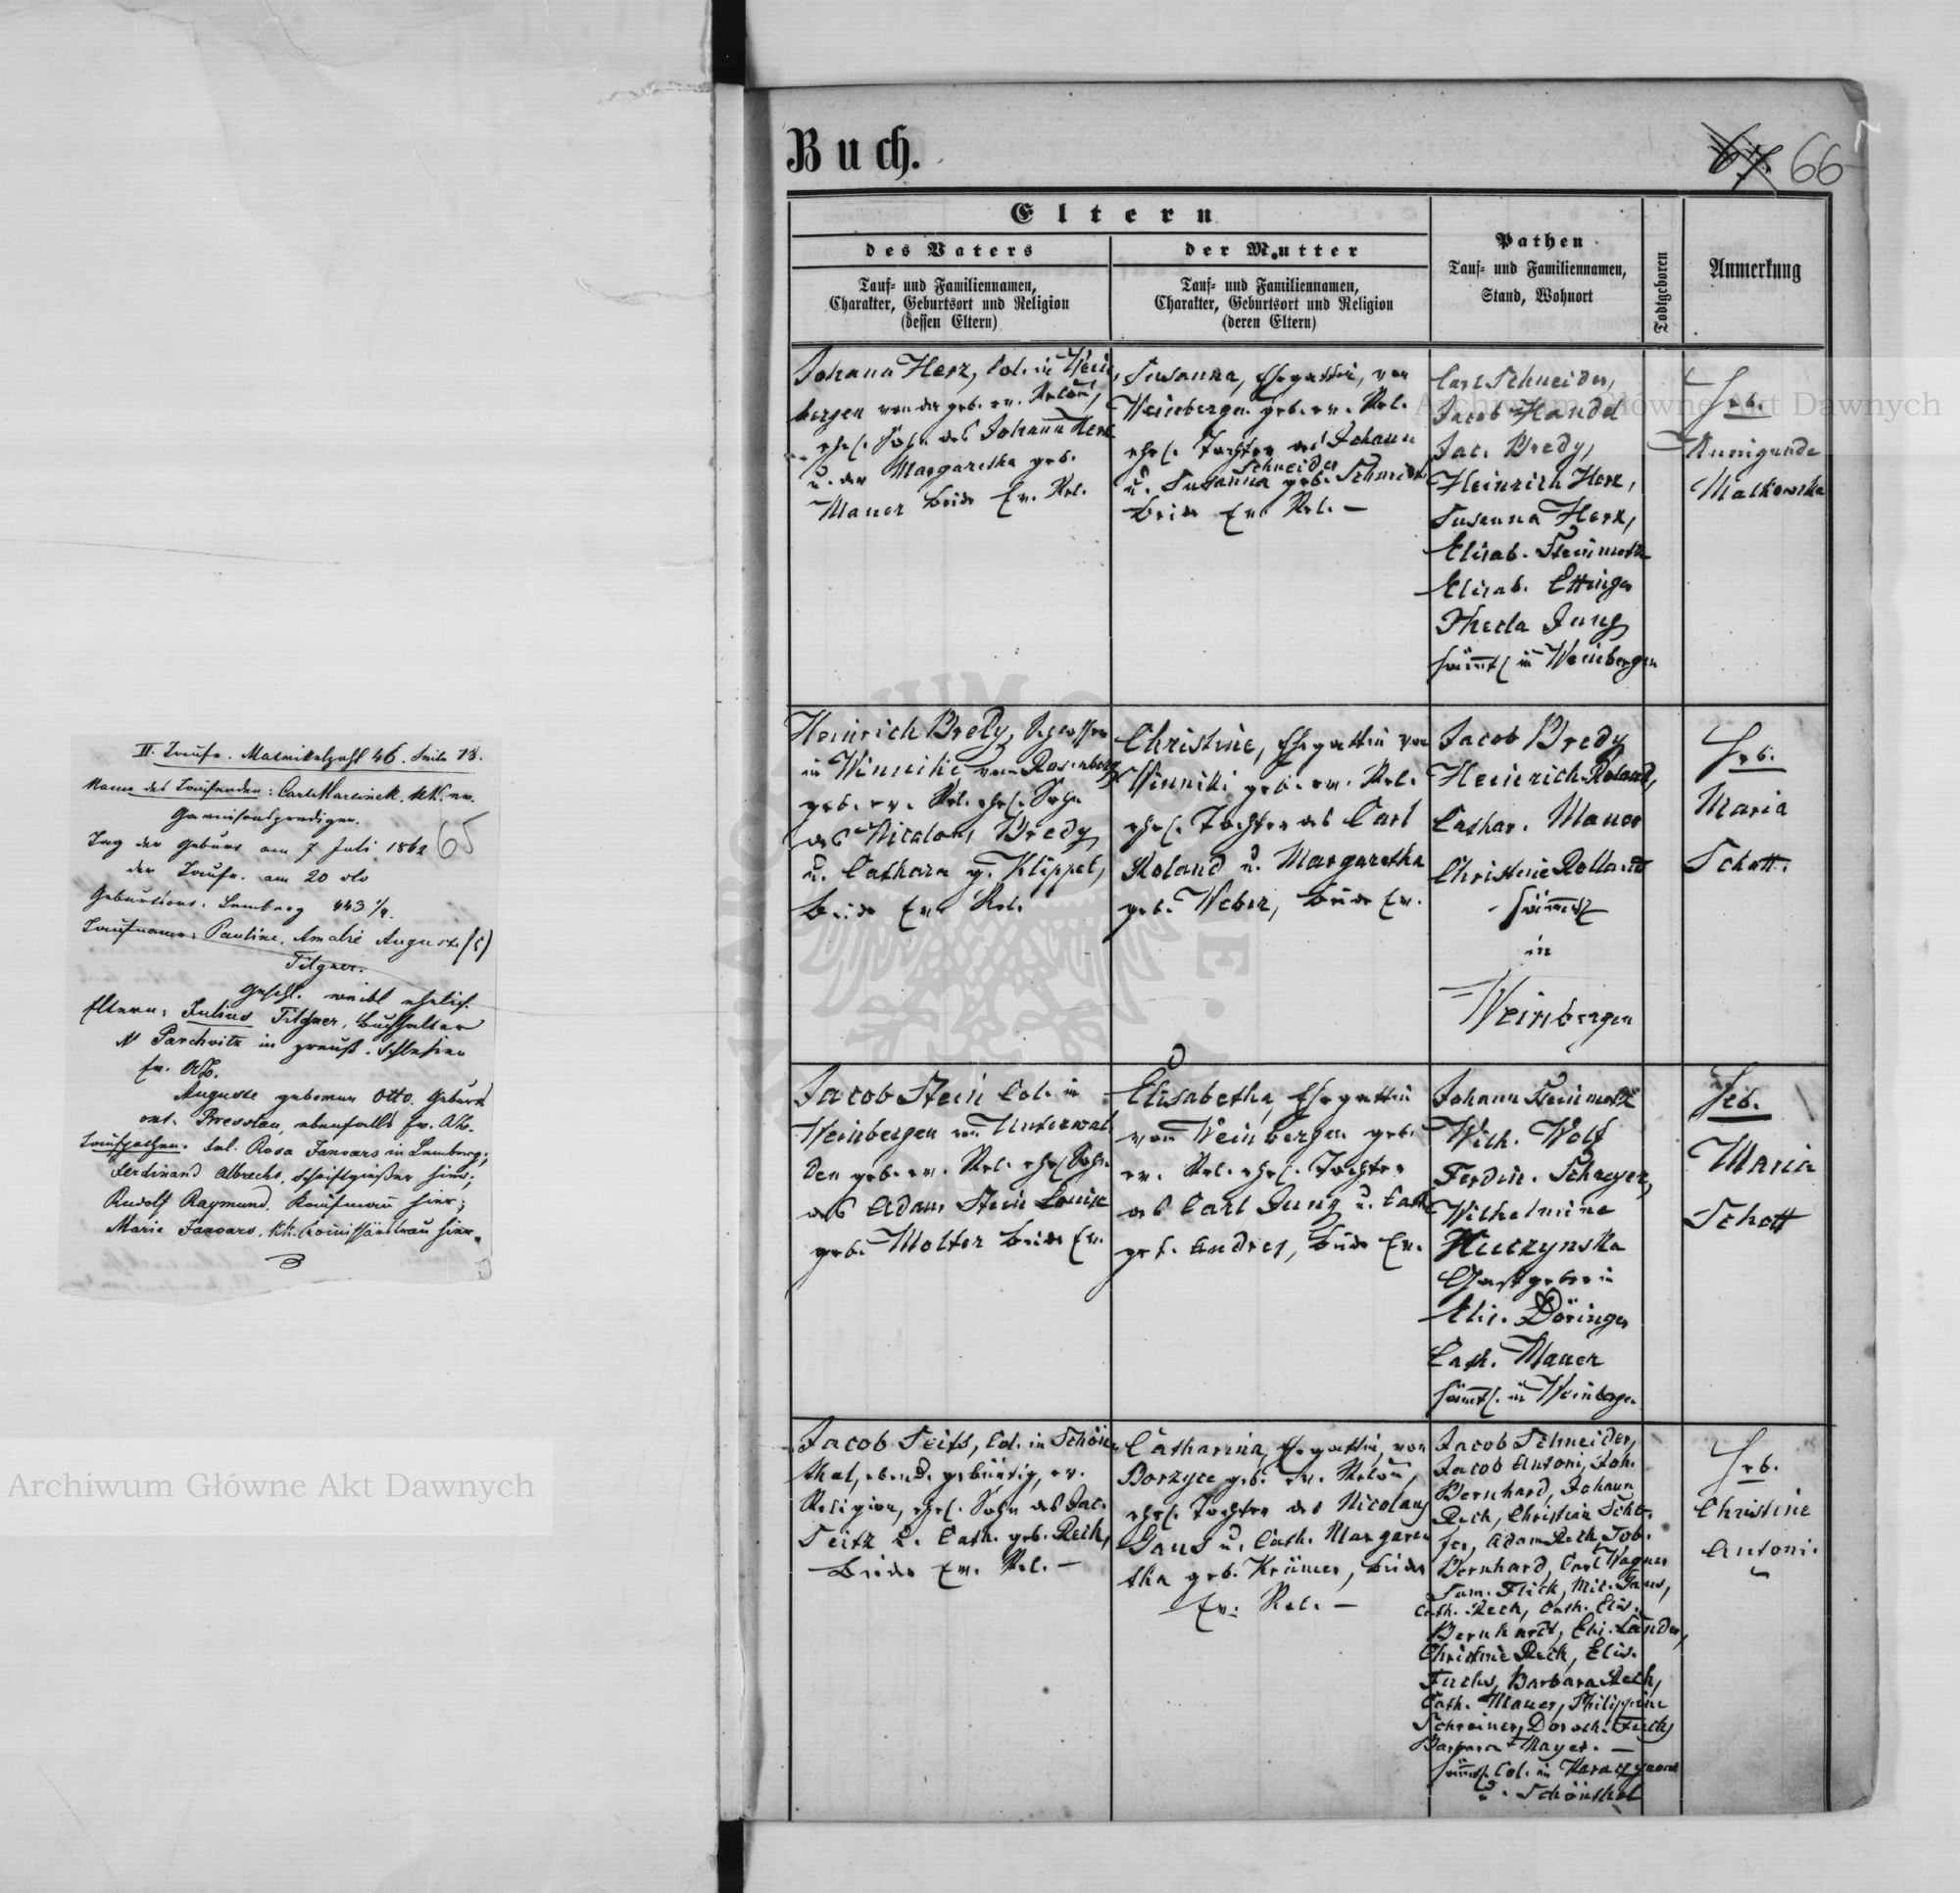 II. Taufe. Matrikelzahl 46. Seite 78.
Name des Taufenden: Carl Marinek, k.k. ev.
Garnisonsprediger.
Tag der Geburt am 7 Juli 1862
65
der Taufe. am 20 dto
Geburtsort. Lemberg 443 1/4.
Taufname: Pauline, Amalie Auguste
Tilgner.
Geschl. weibl ehelich.
Eltern: Julius Tilgner, Buchhalter
Parchwitz in preuß. Schlesien
Ev. AC.
Auguste geborene Otto. Geburts
ort. Breslau, ebenfalls Ev. AC.
Taufpathen. Rosa Janvars in Lemberg;
Ferdinand Albrecht, Schriftgießer hier;
Rudolf Raymund, Kaufmann hier;
Marie Janvars. k.k. hier.
Buch.
67. 66
Eltern
des Vaters
Tauf- und Familiennamen,
Charakter, Geburtsort und Religion
(dessen Eltern)
der Mutter
Tauf- und Familiennamen,
Charakter, Geburtsort und Religion
(deren Eltern)
Pathen
Tauf- und Familiennamen,
Stand, Wohnort
Todtgeboren
Anmerkung
Johann Herz, Col. in Wein
bergen von da geb. ev. Relon,
ehel. Sohn des Johann Herz
u. der Margaretha geb.
Mauer beide Ev. Rel.
Susanna, Ehegattin, von
Weinbergen geb. ev. Rel.
ehel. Tochter des Johann
Schneider
u. Susanna geb. Schmidt
beide Ev. Rel. —
Carl Schneider,
Jacob Handel
Jac. Bredy,
Heinrich Herz,
Susanna Herz,
Elisab. Steinmetz
Elisab. Ettinger
Thecla Jung
sämtl in Weinbergen
Heb.
Kunigunde
Malkowska
Heinrich Bredy, Insasse
in Winniki, von Rosenberg
geb. ev. Rel. ehel. Sohn
des Nicolaus Bredy
u. Cathara g. Klippel,
beide Ev. Rel.
Christine, Ehegattin von
Winniki geb. ev. Rel.
ehel. Tochter des Carl
Roland u. Margaretha
geb. Weber, beide Ev.
Jacob Bredy
Heinrich Roland,
Cathar. Mauer
Christine Rolland
sämtl
in
Weinbergen
Heb.
Maria
Schott.
Jacob Stein Col. in
Weinbergen von Unterwal
den geb. ev. Rel. ehel Sohn
des Adam Stein Louise
geb. Molter beide Ev.
Elisabetha, Ehegattin
von Weinbergen geb.
ev. Rel. ehel. Tochter
des Carl Jung u. Cath
geb. Andres, beide Ev.
Johann Steinmetz
Wilh. Wolf
Ferdin. Schreyer,
Wilhelmine
Huczynska
Gastgeberin
Elis. Döringer
Cath. Mauer
sämtl. in Weinbergen
Heb.
Maria
Schott
Jacob Seits, Col. in Schön
thal, ebend. gebürtig, ev.
Religion, ehel. Sohn des Jac.
Seitz u. Cath. geb. Rech,
beide Ev. Rel. —
Catharina, Ehegattin, von
Dorzyce geb. ev. Relon,
ehel. Tochter des Nicolaus
Gaus u. Cath. Margare
tha geb. Krämer, beide
Ev. Rel. —
Jacob Schneider,
Jacob Antoni, Joh.
Bernhard, Johann
Rech, Christian Schä-
fer, Adam Rech, Job.
Bernhard, Carl Wagner
Sam. Flick, Mic. Gaus,
Cath. Rech, Cath. Elis.
Bernhardt, Eli. Sander,
Christine Rech, Elis.
Fuchs, Barbara Rech,
Cath. Mauer, Philippine
Schreiner, Doroth. Fuchs
Barbara Mayer. —
sämtl. Col. in
u. Schönthal
Heb.
Christine
Antoni.
Archiwum Główne Akt Dawnych
Archiwum Główne Akt Dawnych